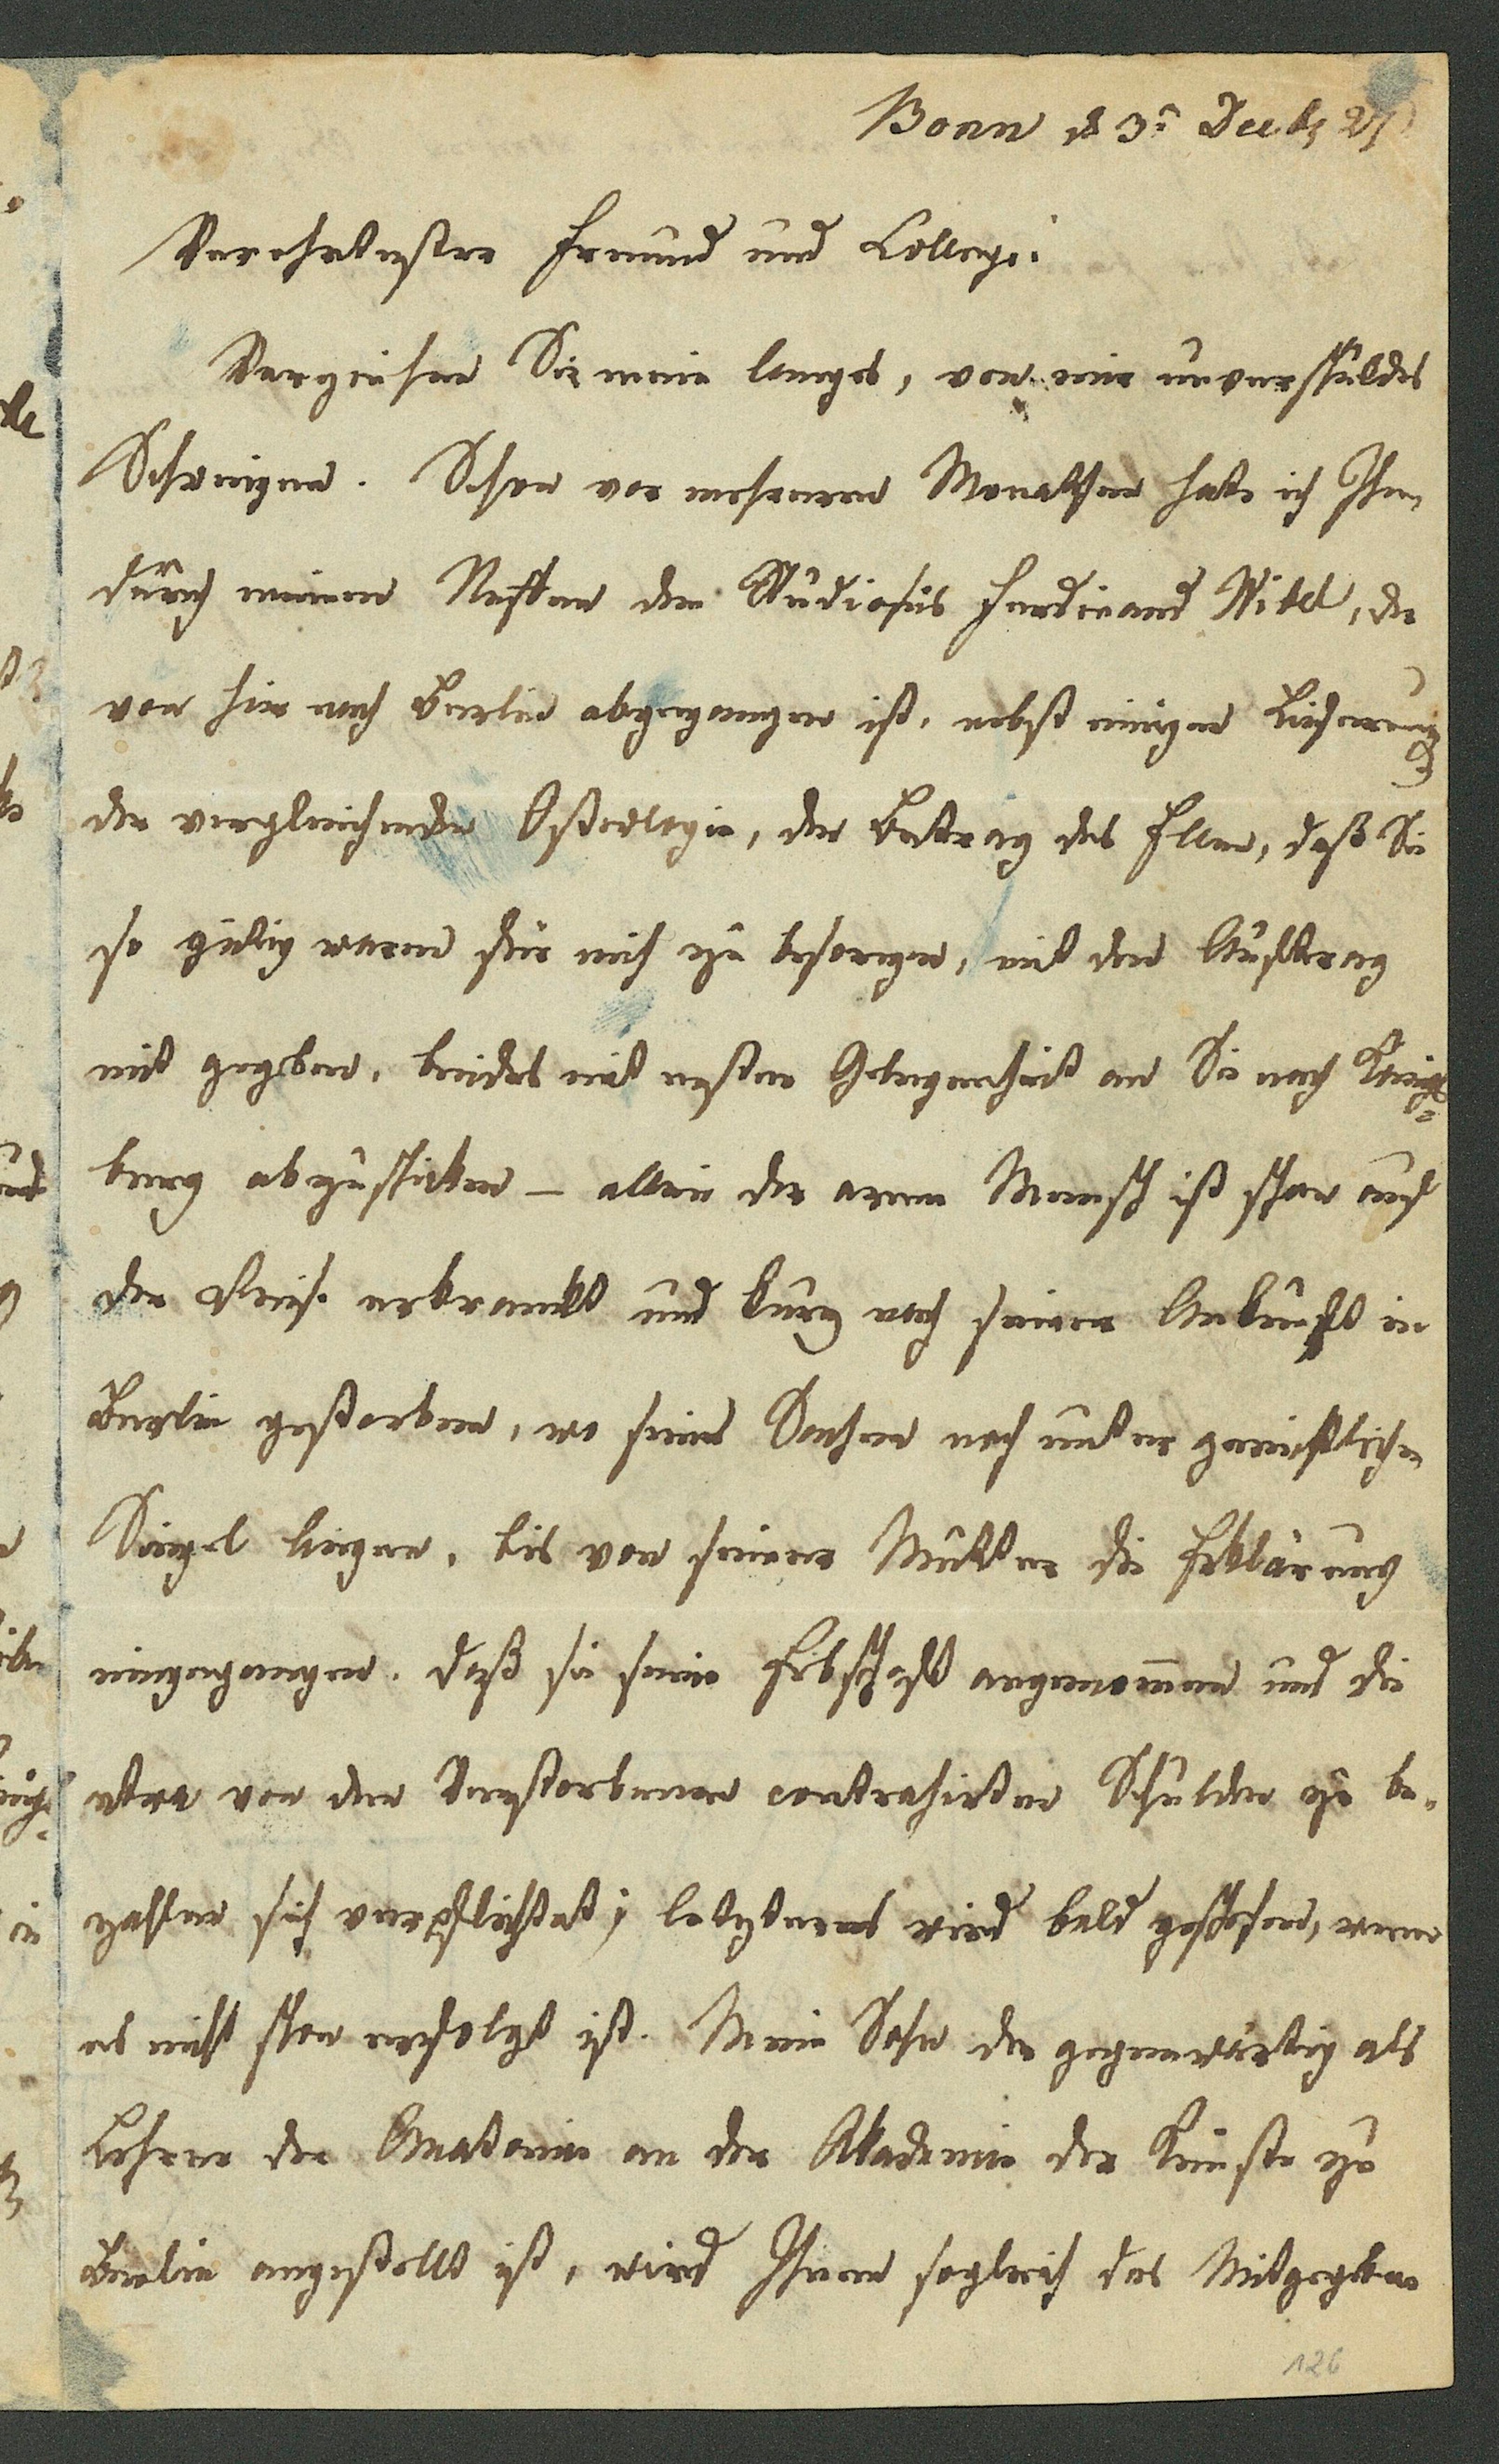 Bonn d 3t Decbr 27
Verehrtester Freund und College!
Verzeihen Sie mein langes, von mir unverschuldes
Schweigen. Schon vor mehreren Monathen hatte ich Ihn
durch meinen Neffen den Studiosus Ferdinand Witel, der
von hier nach Berlin abgegangen ist, nebst einigen Lieferung
der vergleichenden Osteologie, den Betrag des Ellen, daß Sie
so gütig waren für mich zu besorgen, mit dem Auftrag
mit gegeben, beides mit erster Gelegenheit an Sie nach Königs=
berg abzuschicken – allein der arme Mensch ist schon auf
der Reise erkrankt und kurz nach seiner Ankunft in
Berlin gestorben, wo seine Sachen noch unter gerichtlichen
Siegel liegen, bis von seiner Mutter die Erklärung
eingegangen, daß sie seine Erbschaft angenommen und die
etwa von dem Verstorbenen contrahirten Schulden zu be-
zahlen sich verpflichtet; letzteres wird bald geschehen, wenn
es nicht schon erfolgt ist. Mein Sohn der gegenwärtig als
Lehrer der Anatomie an der Akademie der Künste zu
Berlin angestellt ist, wird Ihnen sogleich das Mitgegebene
126